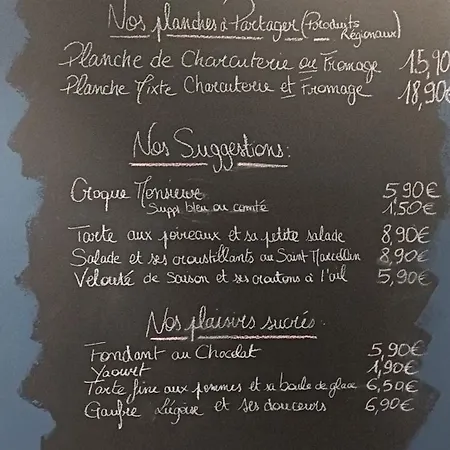 Nos planches à Partager (Produits Régionaux)
Planche de Charcuterie ou Fromage 15,90
Planche Mixte Charcuterie et Fromage 18,90€
Nos Suggestions:
Croque Monsieur 5,90€
Suppl bleu ou comté 1,50€
Tarte aux poireaux et sa petite salade 8,90€
Salade et ses croustillants au Saint Marcellin 8,90€
Velouté de Saison et ses croutons à l'ail 5,90€
Nos plaisirs sucrés.
Fondant au Chocolat 5,90€
Yaourt 1,90€
Tarte fine aux pommes et sa boule de glace 6,50€
Gaufre Liégoise et ses douceurs 6,90€